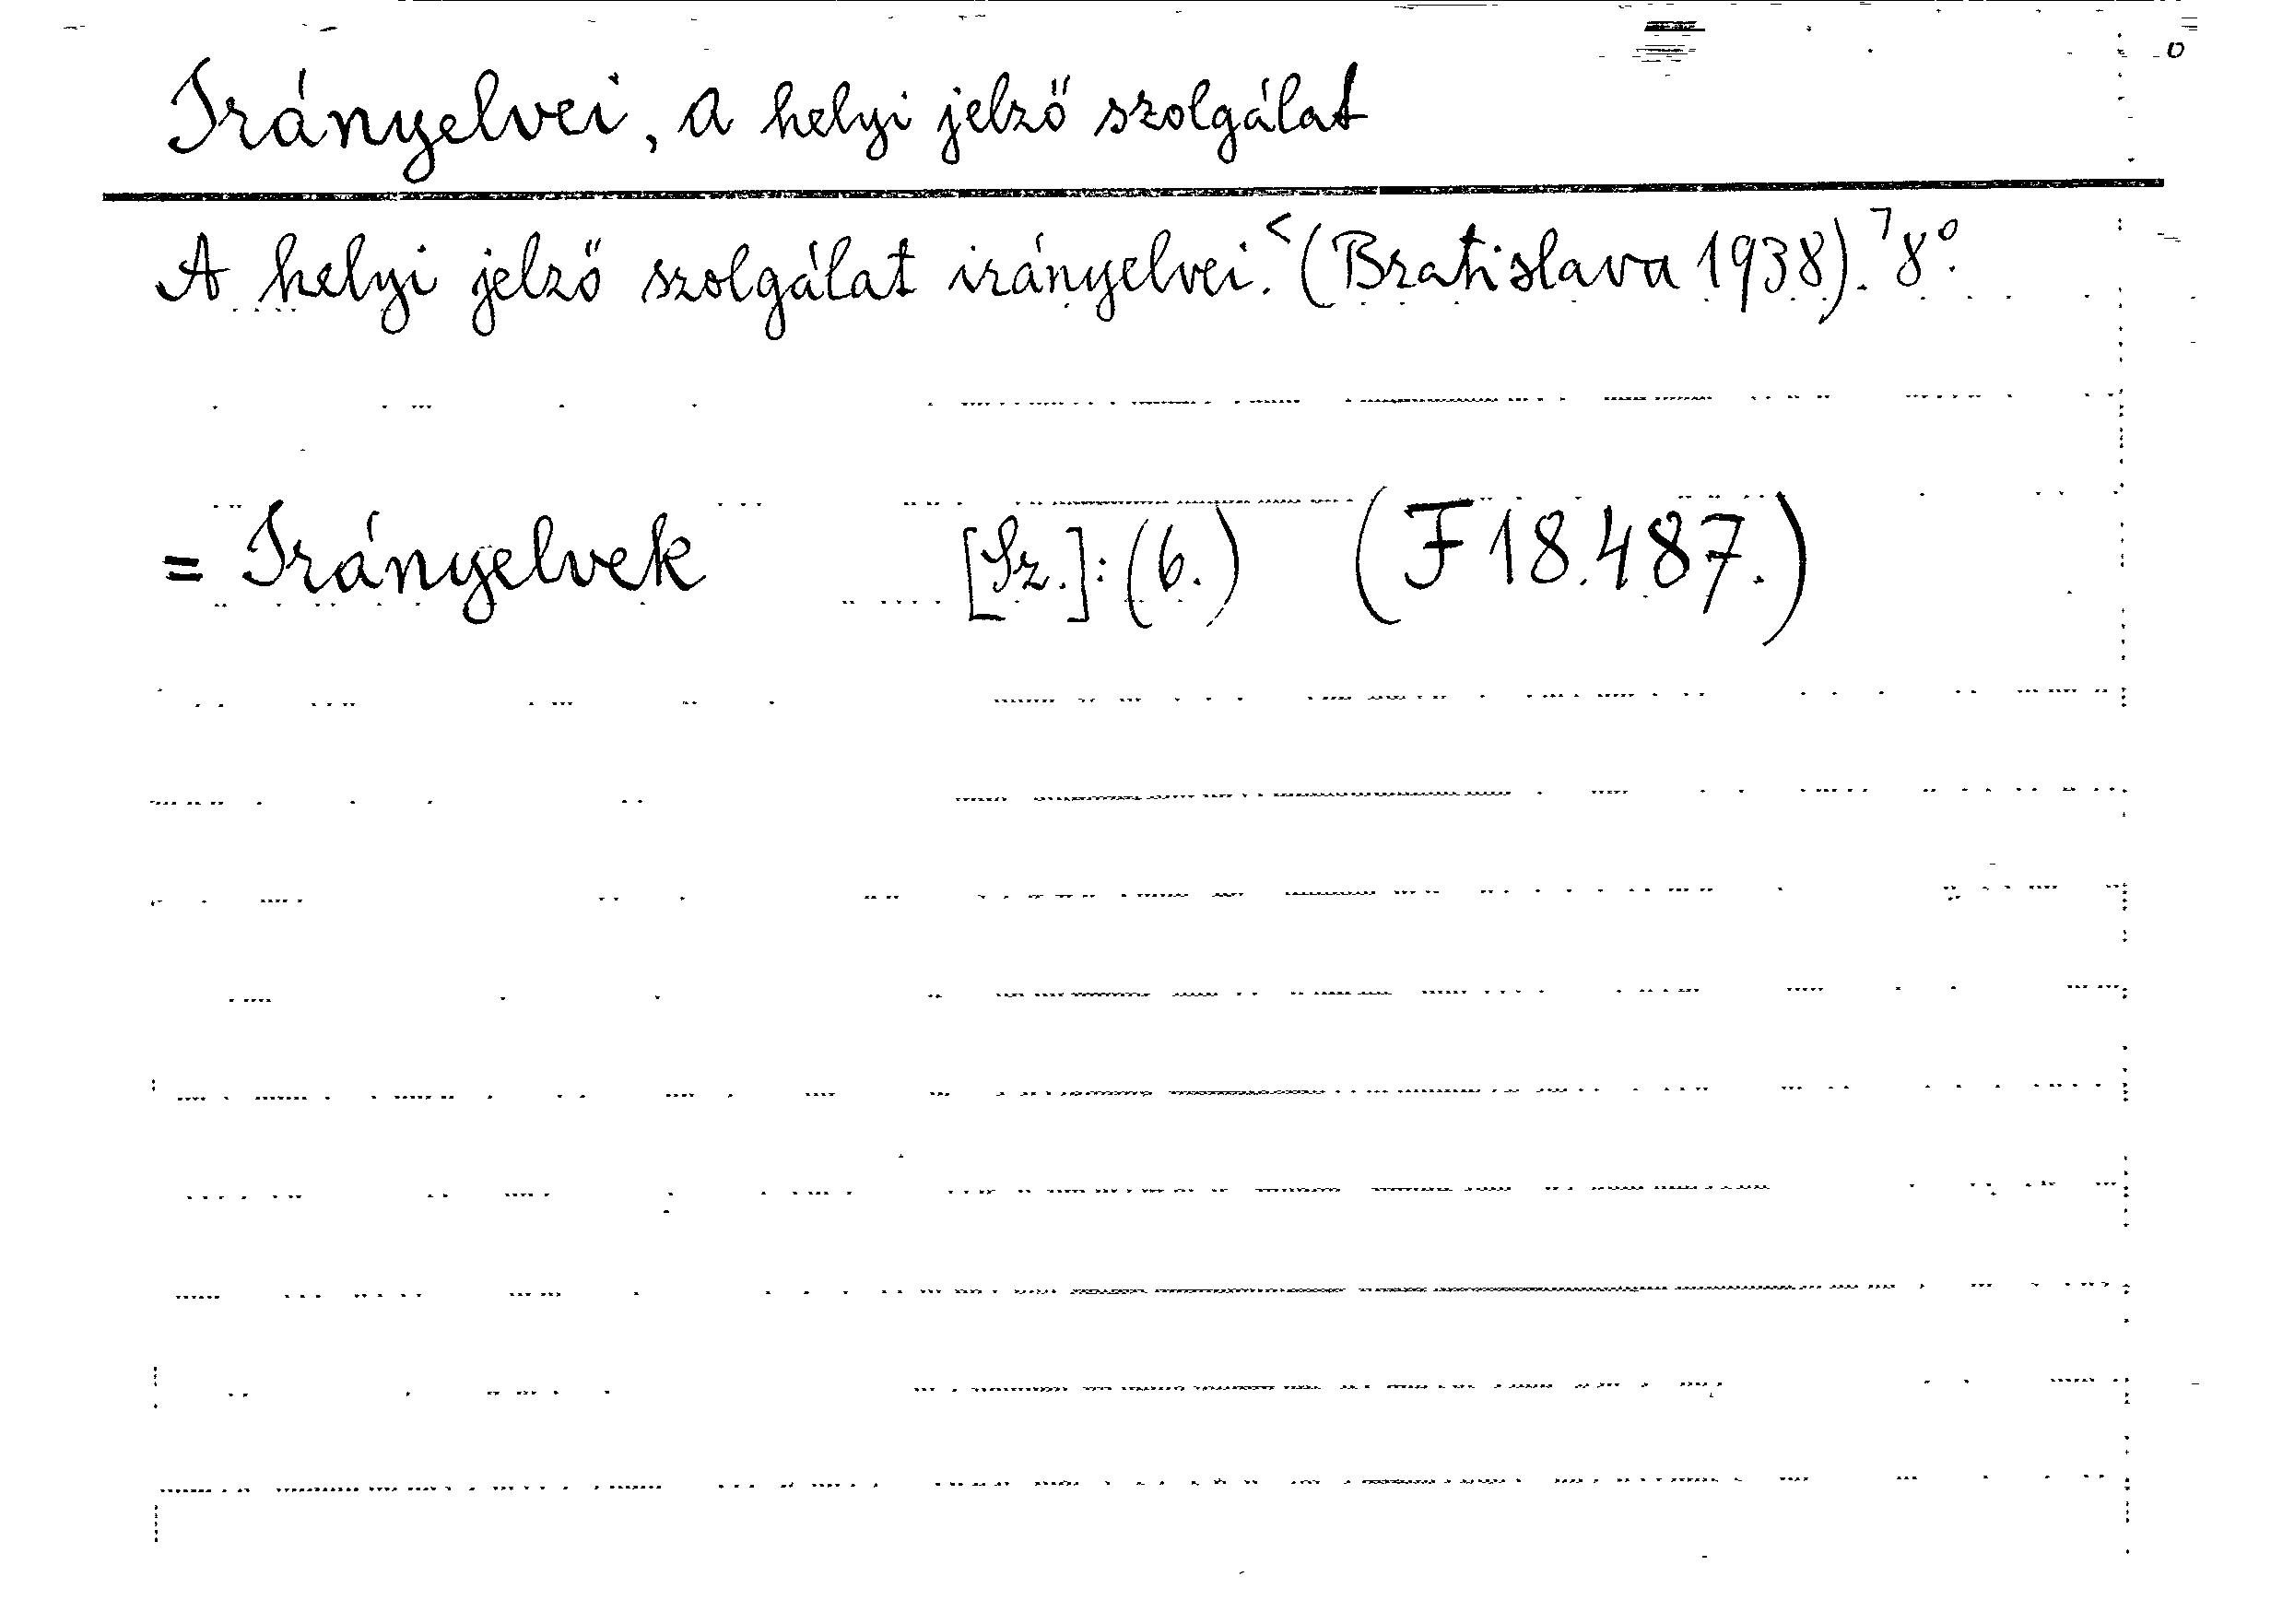 Irányelvei, a helyi jelző szolgálat
A helyi jelző szolgálat irányelvei. <(Bratislava 1938).⁊ 8°.
= Irányelvek [Sz.]: (6.) (F 18.487.)